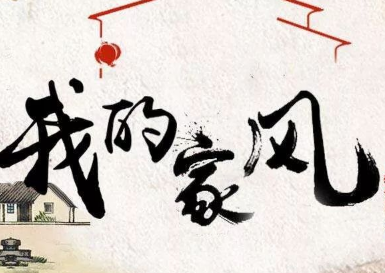 我的家风